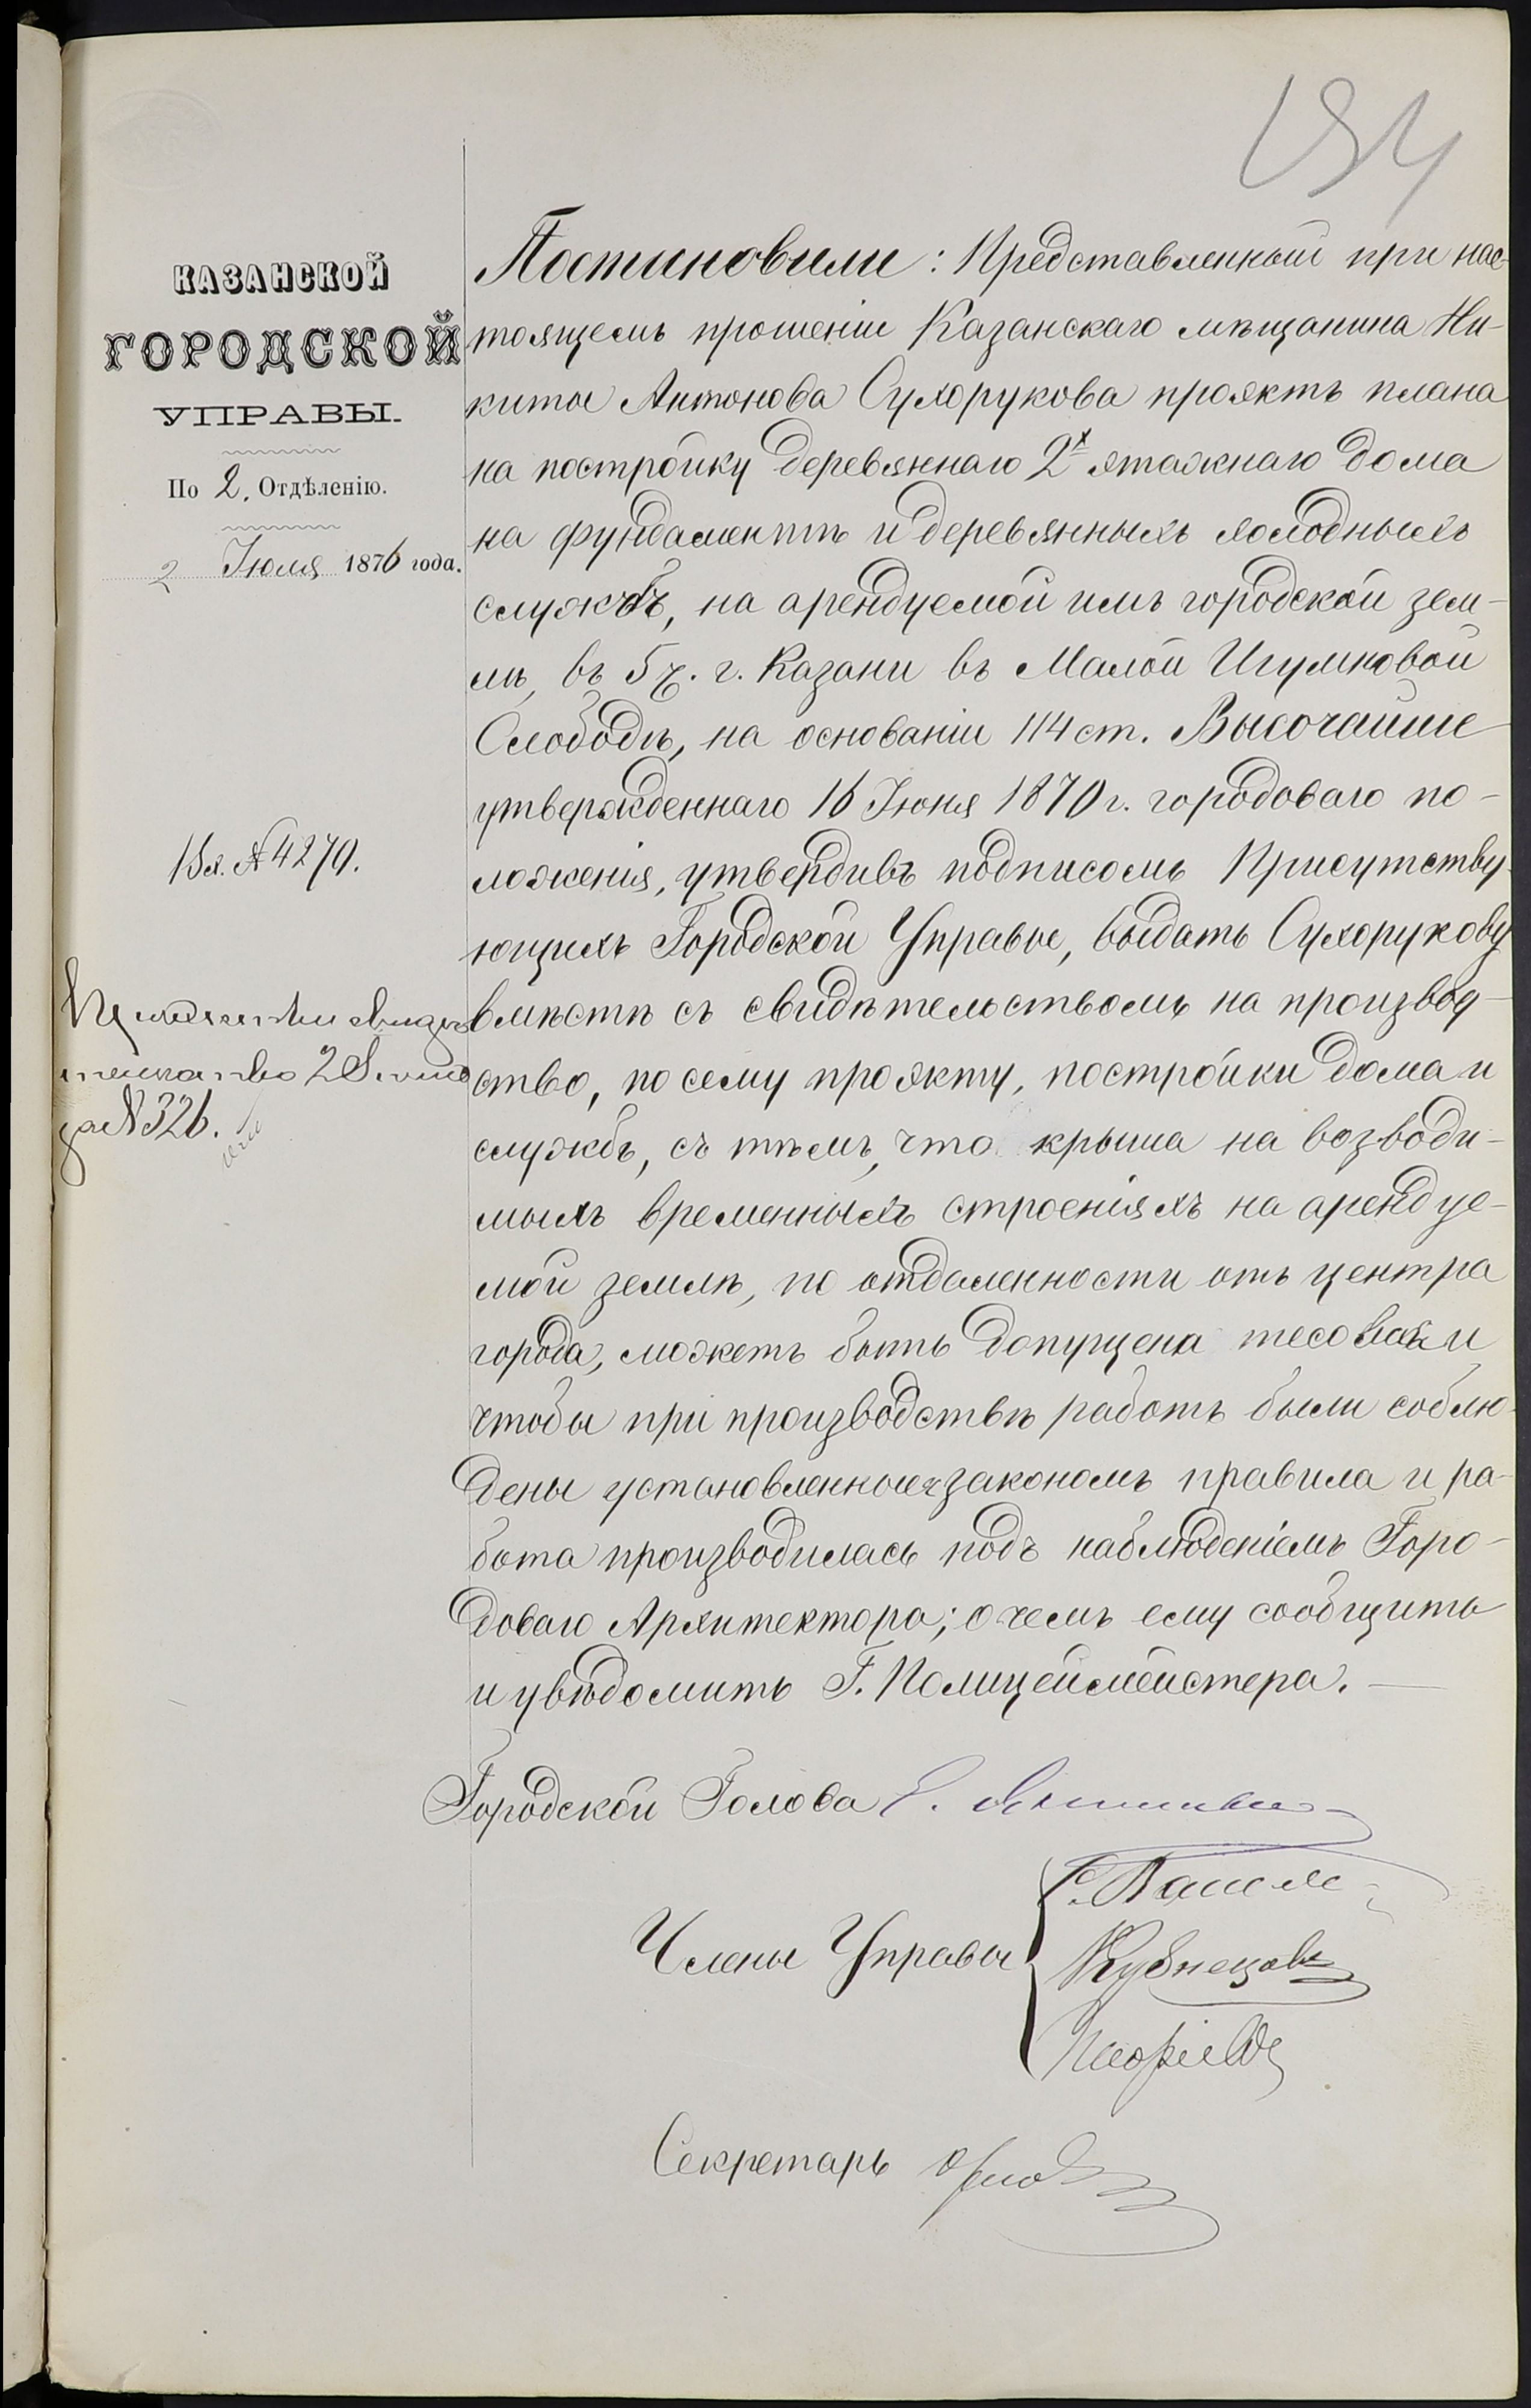 194
КАЗАНСКОЙ
ГОРОДСКОЙ
УПРАВЫ.
По 2. Отдѣленію.
2 Іюля 1876 года.
Вх. № 4279.
за № 326.
Постановили: Представленный при нас-
тоящемъ прошеніи Казанскаго мѣщанина Ни-
киты Антонова Сухорукова проэктъ плана
на постройку деревяннаго 2х этажнаго дома
на фундаментѣ и деревянныхъ холодныхъ
службъ, на арендуемой имъ городской зем-
лѣ, въ 5 ч. г. Казани въ Малой Игумновой
Слободѣ, на основаніи 114 ст. Высочайше
утвержденнаго 16 Іюня 1870 г. городоваго по-
ложенія, утвердивъ подписомъ Присутству-
ющихъ Городской Управы, выдать Сухорукову
вмѣстѣ съ свидѣтельствомъ на производ-
ство, по сему проэкту, постройки дома и
службъ, съ тѣмъ, что крыша на возводи-
мыхъ временныхъ строеніяхъ на арендуе-
мой землѣ, по отдаленности отъ центра
города, можетъ быть допущена тесовая и
чтобы при производствѣ работъ были соблю-
дены установленныя закономъ правила и ра-
бота производилась подъ наблюденіемъ Горо-
доваго Архитектора; о чемъ ему сообщить
и увѣдомить Г. Полицеймейстера. —
Городской Голова
Члены Управы
Кузнецовъ
Секретарь